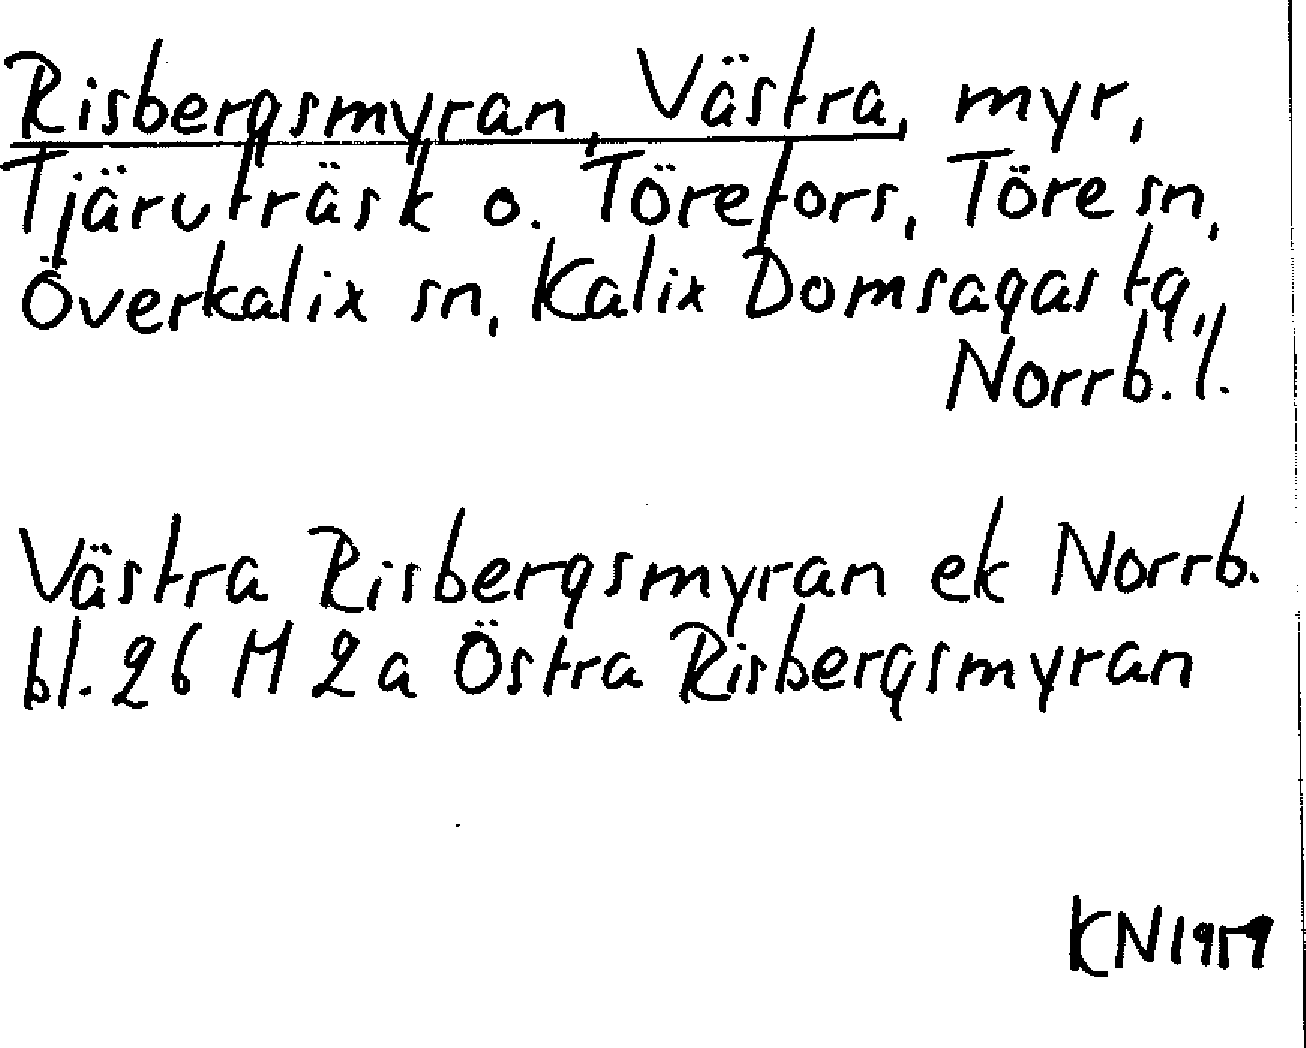 Risbergsmyran, Västra, myr,
Tjäruträsk o. Törefors, Töre sn,
Överkalix sn, Kalix Domsagas tg,
Norrb. l.
Västra Risbergsmyran ek Norrb.
bl. 26 M 2a Östra Risbergsmyran
KN 1959